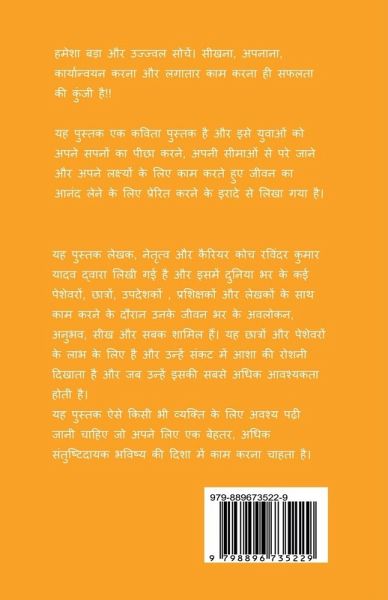 हमेशा बड़ा और उज्ज्वल सोचें। सीखना, अपनाना,
कार्यान्वयन करना और लगातार काम करना ही सफलता
की कुंजी है!!
यह पुस्तक एक कविता पुस्तक है और इसे युवाओं को
अपने सपनों का पीछा करने, अपनी सीमाओं से परे जाने
और अपने लक्ष्यों के लिए काम करते हुए जीवन का
आनंद लेने के लिए प्रेरित करने के इरादे से लिखा गया है।
यह पुस्तक लेखक, नेतृत्व और कैरियर कोच रविंदर कुमार
यादव द्वारा लिखी गई है और इसमें दुनिया भर के कई
पेशेवरों, छात्रों, उपदेशकों , प्रशिक्षकों और लेखकों के साथ
काम करने के दौरान उनके जीवन भर के अवलोकन,
अनुभव, सीख और सबक शामिल हैं। यह छात्रों और पेशेवरों
के लाभ के लिए है और उन्हें संकट में आशा की रोशनी
दिखाता है और जब उन्हें इसकी सबसे अधिक आवश्यकता
होती है।
यह पुस्तक ऐसे किसी भी व्यक्ति के लिए अवश्य पढ़ी
जानी चाहिए जो अपने लिए एक बेहतर, अधिक
संतुष्टिदायक भविष्य की दिशा में काम करना चाहता है।
979-889673522-9
9 798896 735229